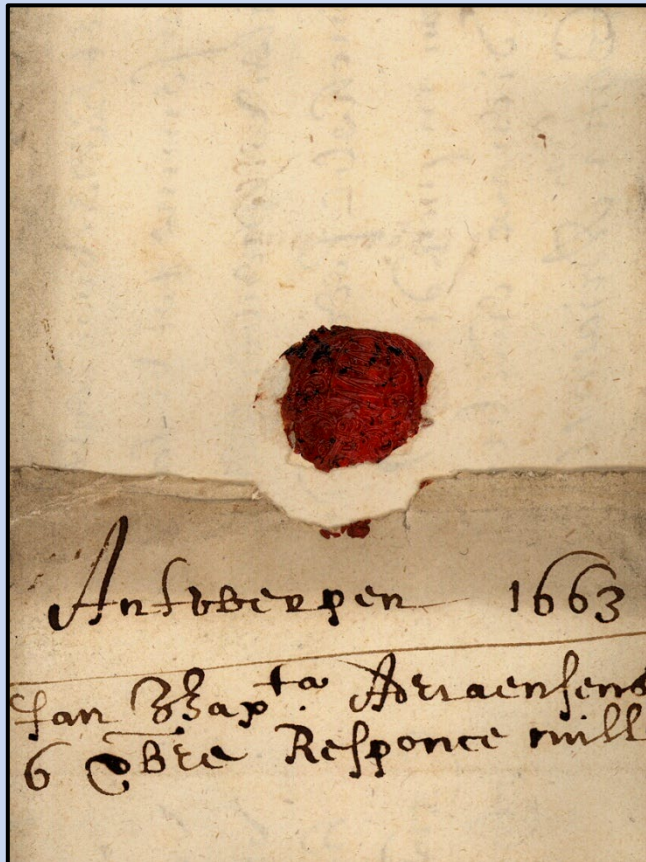 Antwerpen 1663
Jan Bap^ta Adriaensens
6 Responce nill